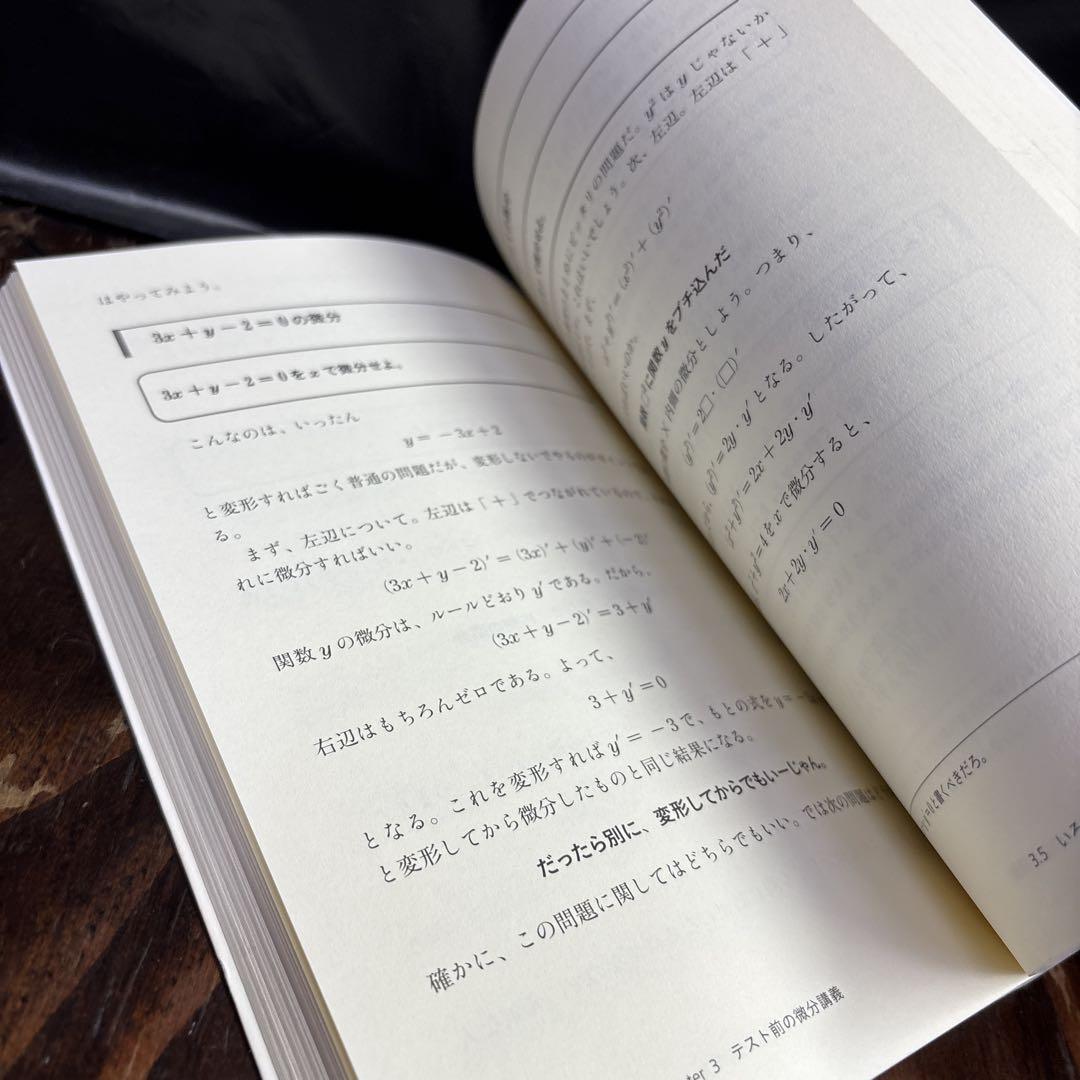 はやってみよう。
3x+y−2=0の微分
3x+y−2=0をxで微分せよ。
こんなのは、いったん
y=−3x+2
と変形すればごく普通の問題だが、変形しないでやるのがポイン
る。
まず、左辺について。左辺は「+」でつながれているので、
れに微分すればいい。
(3x+y−2)′=(3x)′+(y)′+(−2)′
関数yの微分は、ルールどおりy′である。だから、
(3x+y−2)′=3+y′
右辺はもちろんゼロである。よって、
3+y′=0
となる。これを変形すればy′=−3で、もとの式をy=−
と変形してから微分したものと同じ結果になる。
だったら別に、変形してからでもいーじゃん。
確かに、この問題に関してはどちらでもいい。では次の問題は
ter 3 テスト前の微分講義
の問題だ。y²はyじゃないか
でしょう。次、左辺。左辺は「+」
(x²)′+(y²)′
に関数yをブチ込んだ
×内側の微分としよう。つまり、
(y²)′=2□・(□)′
(y²)′=2y・y′となる。したがって、
x²+y²)′=2x+2y・y′
+y²=4をxで微分すると、
2x+2y・y′=0
と置くべきだろ。
3.5 いろ